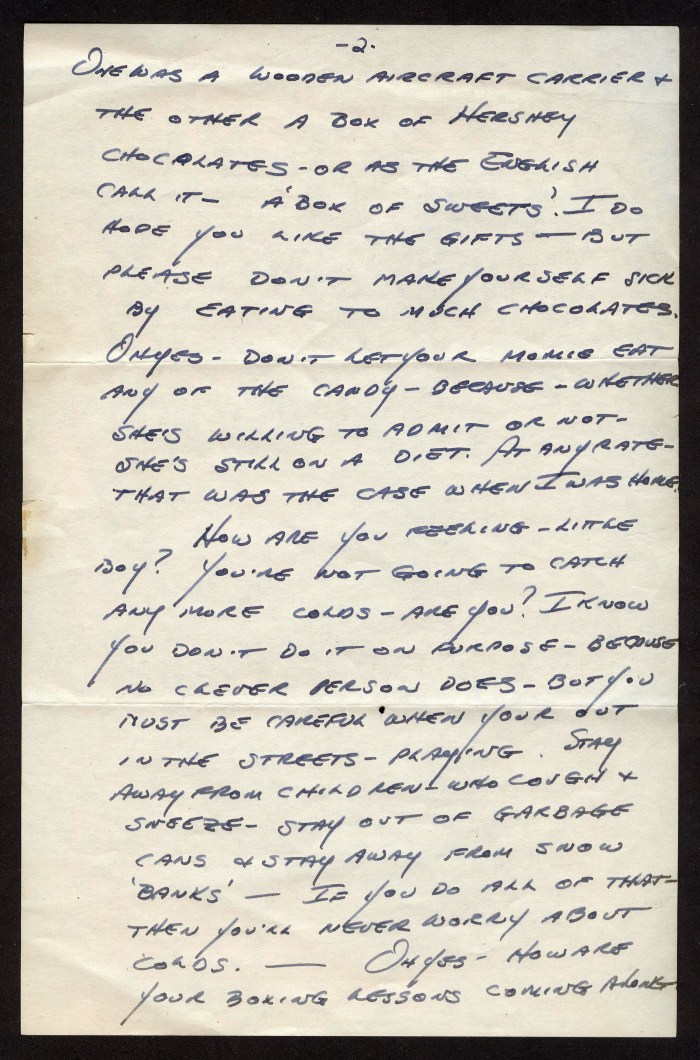 -2-
ONE WAS A WOODEN AIRCRAFT CARRIER &
THE OTHER A BOX OF HERSHEY
CHOCALATES - OR AS THE ENGLISH
CALL IT - A 'BOX OF SWEETS'. I DO
HOPE YOU LIKE THE GIFTS - BUT
PLEASE DON'T MAKE YOURSELF SICK
BY EATING TO MUCH CHOCOLATES.
OH YES - DON'T LET YOUR MOMIE EAT
ANY OF THE CANDY - BECAUSE - WHETHER
SHE'S WILLING TO ADMIT OR NOT -
SHE'S STILL ON A DIET. AT ANY RATE -
THAT WAS THE CASE WHEN I WAS HOME.
HOW ARE YOU FEELING - LITTLE
BOY? YOU'RE NOT GOING TO CATCH
ANY MORE COLDS - ARE YOU? I KNOW
YOU DON'T DO IT ON PURPOSE - BECAUSE
NO CLEVER PERSON DOES - BUT YOU
MUST BE CAREFUL WHEN YOUR OUT
IN THE STREETS - PLAYING. STAY
AWAY FROM CHILDREN - WHO COUGH &
SNEEZE - STAY OUT OF GARBAGE
CANS & STAY AWAY FROM SNOW
'BANKS' - IF YOU DO ALL OF THAT -
THEN YOU'LL NEVER WORRY ABOUT
COLDS. - OH YES - HOW ARE
YOUR BOXING LESSONS COMING ALONG?